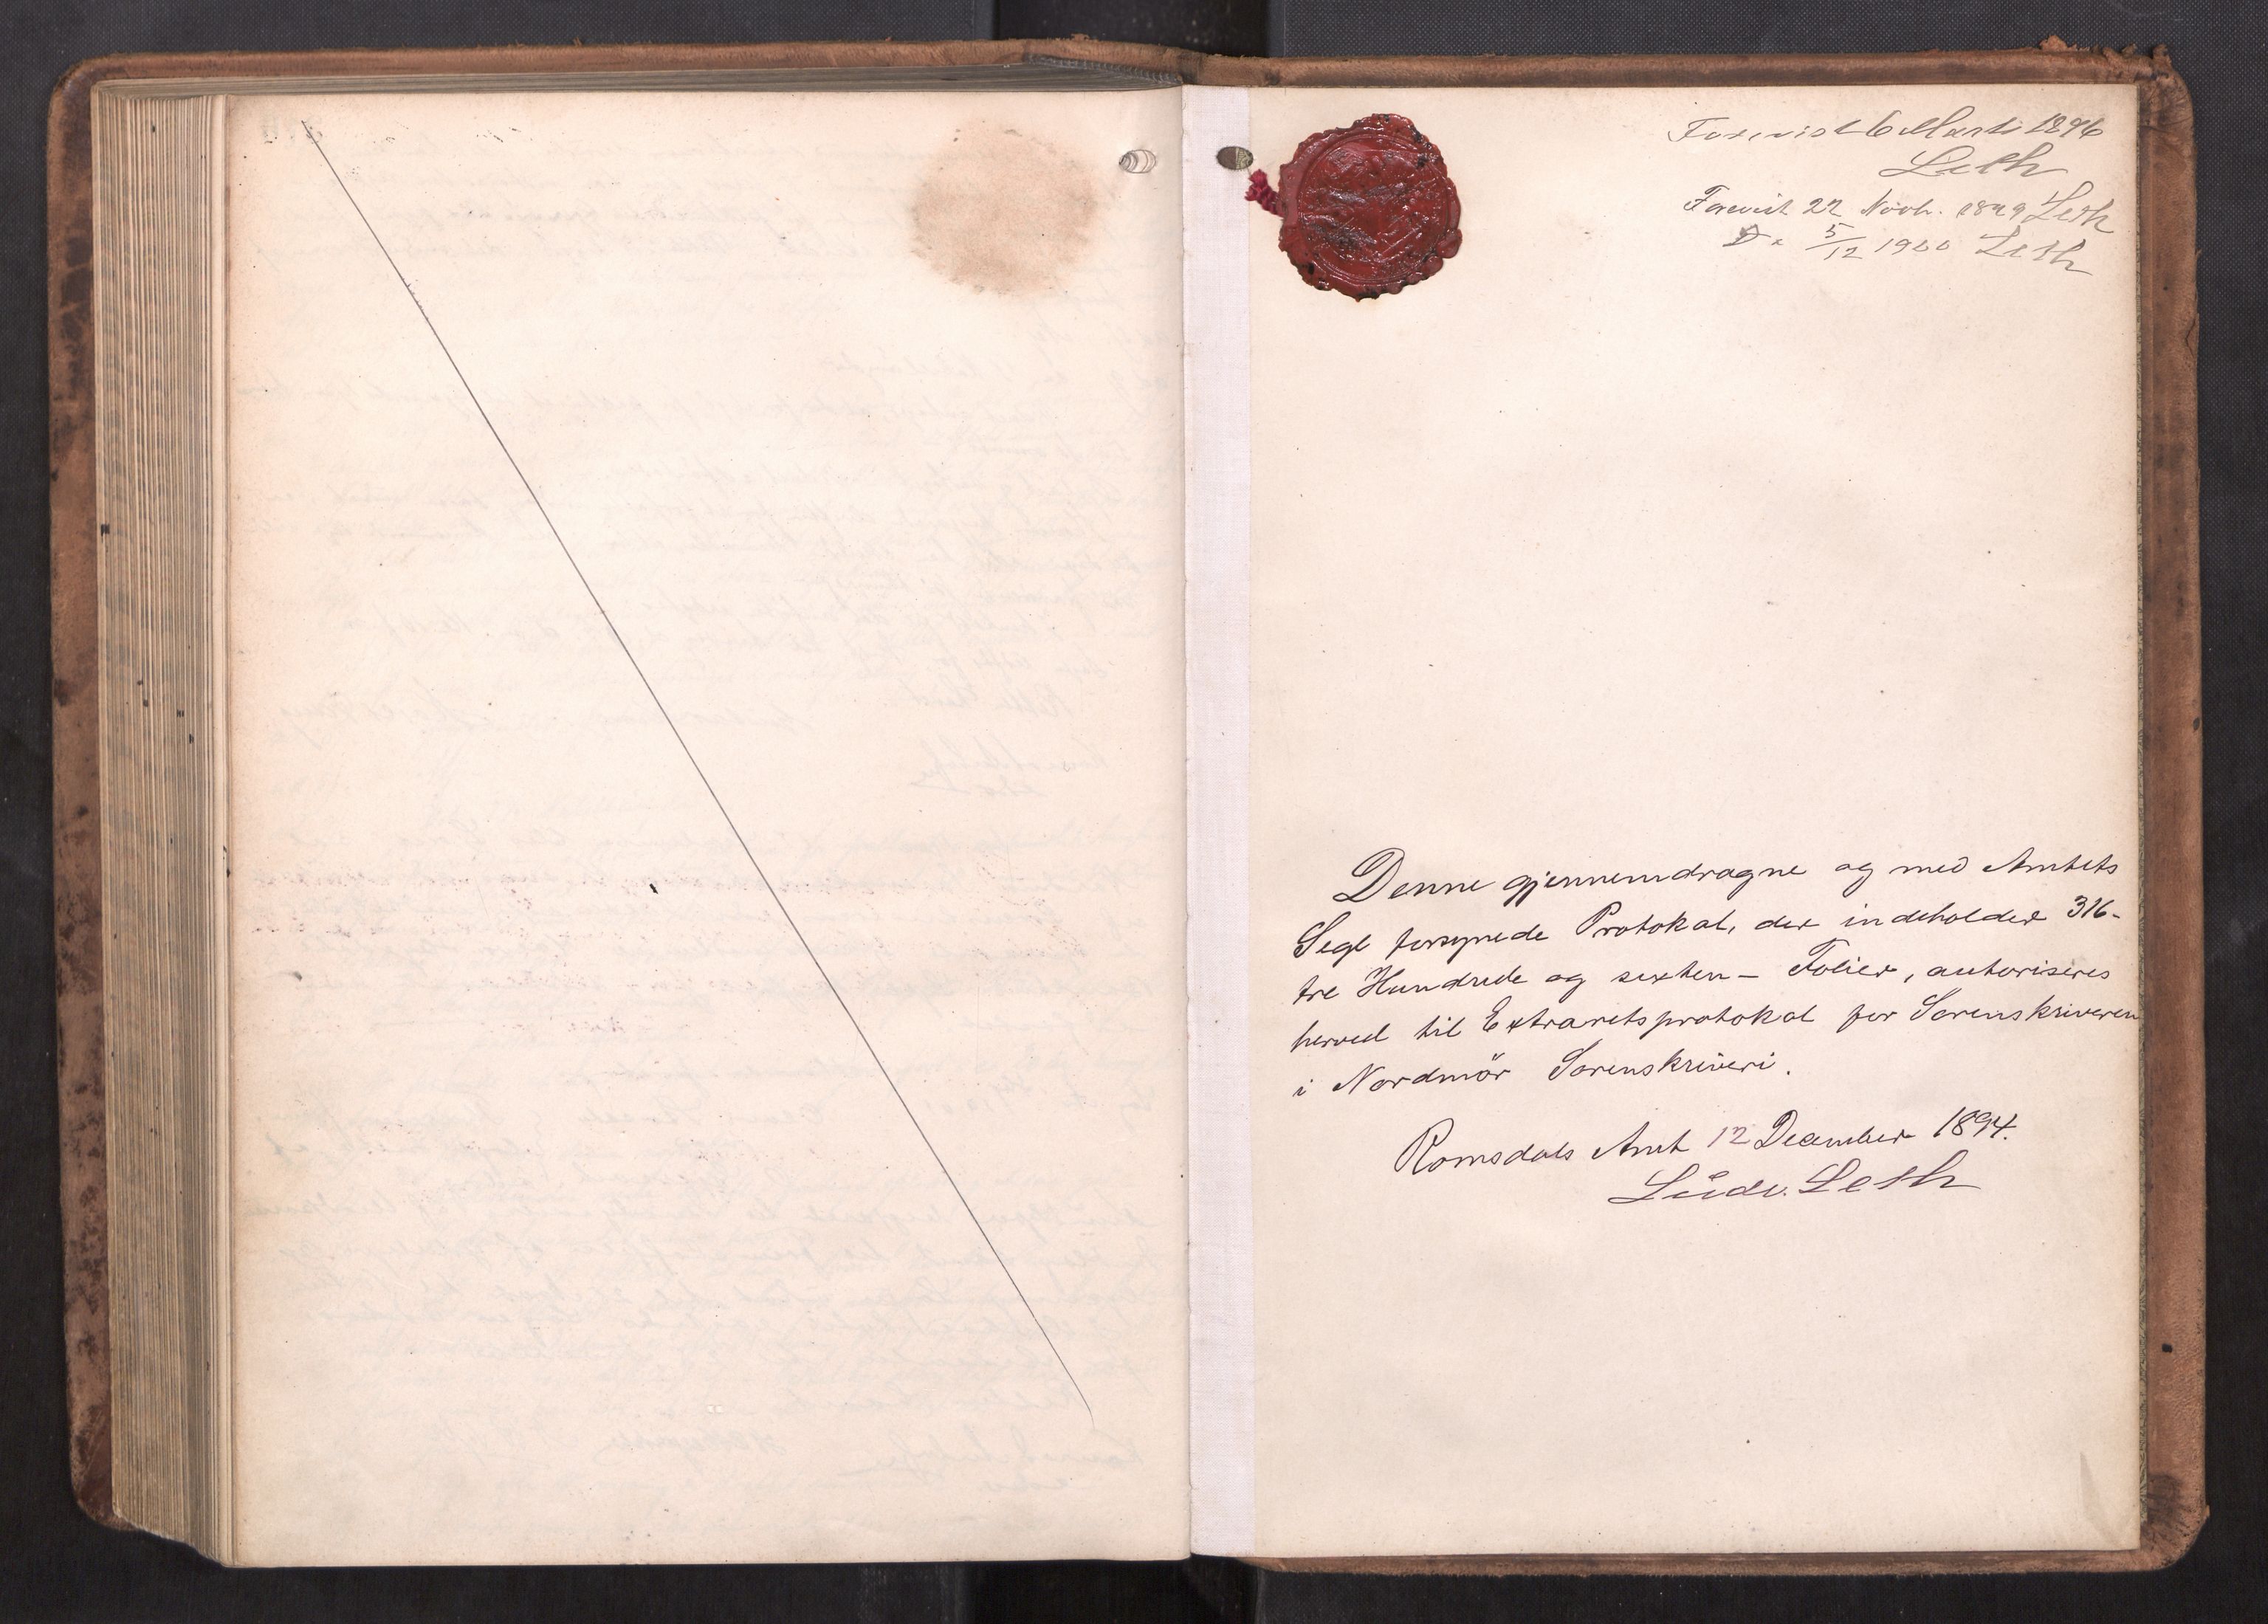 Forevist 6 Marts 1896
Leth
Forevist 22 Novb. 1899 Leth
Do 5/12 1900 Leth
Denne gjennemdragne og med Amtets
Segl forsynede Protokol, der indeholder 316-
tre Hundrede og sexten - Folier, autoriseres
herved til Extraretsprotokol for Sorenskriveren
i Nordmör Sorenskriveri.
Romsdals Amt 12 December 1894.
Ludv. Leth